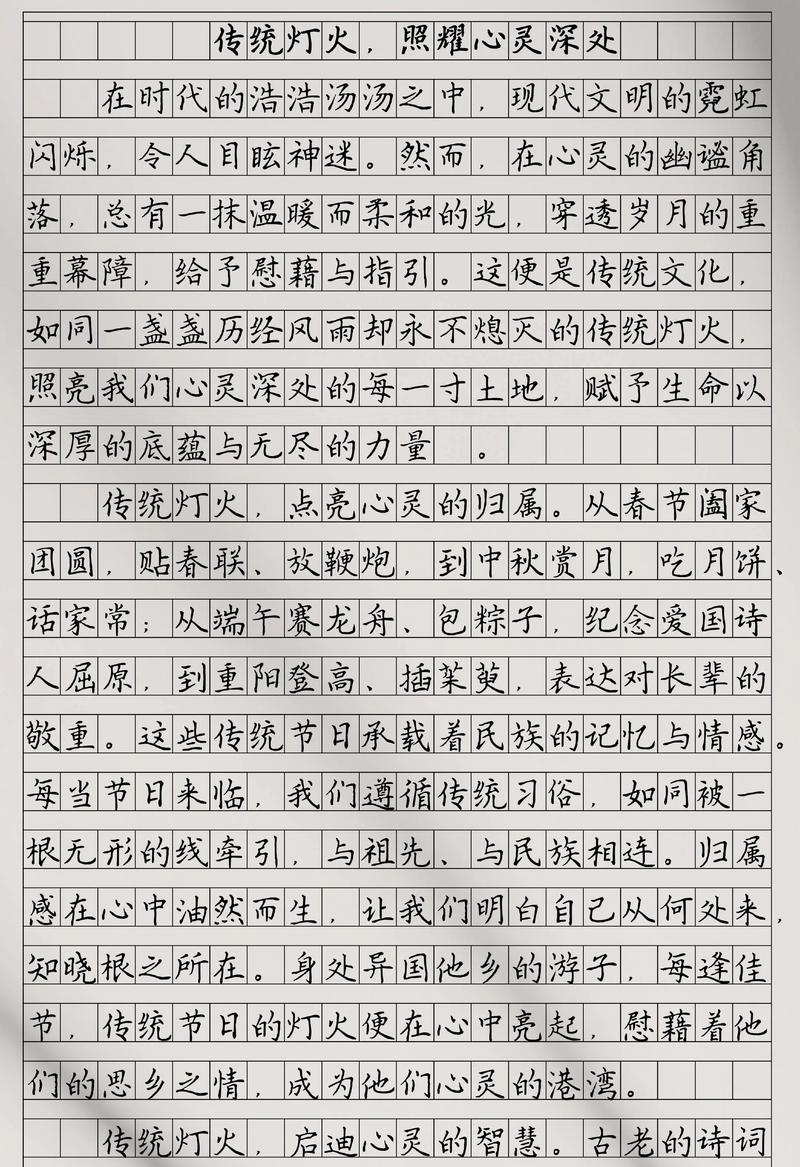 传统灯火，照耀心灵深处
在时代的浩浩汤汤之中，现代文明的霓虹
闪烁，令人目眩神迷。然而，在心灵的幽谧角
落，总有一抹温暖而柔和的光，穿透岁月的重
重幕障，给予慰藉与指引。这便是传统文化，
如同一盏盏历经风雨却永不熄灭的传统灯火，
照亮我们心灵深处的每一寸土地，赋予生命以
深厚的底蕴与无尽的力量 。
传统灯火，点亮心灵的归属。从春节阖家
团圆，贴春联、放鞭炮，到中秋赏月，吃月饼、
话家常；从端午赛龙舟、包粽子，纪念爱国诗
人屈原，到重阳登高、插茱萸，表达对长辈的
敬重。这些传统节日承载着民族的记忆与情感。
每当节日来临，我们遵循传统习俗，如同被一
根无形的线牵引，与祖先、与民族相连。归属
感在心中油然而生，让我们明白自己从何处来，
知晓根之所在。身处异国他乡的游子，每逢佳
节，传统节日的灯火便在心中亮起，慰藉着他
们的思乡之情，成为他们心灵的港湾。
传统灯火，启迪心灵的智慧。古老的诗词